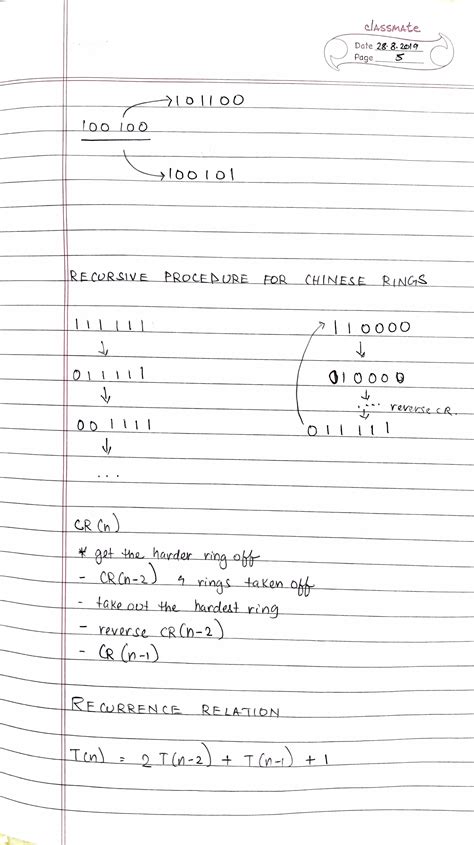 classmate
Date 28.8.2019
Page 5
101100
100 100
100101
RECURSIVE PROCEDURE FOR CHINESE RINGS
111111
110000
011111
010000
.... reverse CR.
001111
011111
...
CR(n)
* get the harder ring off
- CR(n-2) 4 rings taken off
- take out the hardest ring
- reverse CR(n-2)
- CR(n-1)
RECURRENCE RELATION
T(n) = 2T(n-2) + T(n-1) + 1